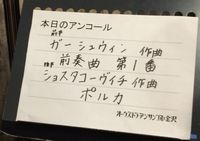 本日のアンコール
前半
ガーシュウィン 作曲
前奏曲 第1番
後半
ショスタコーヴィチ 作曲
ポルカ
オーケストラ・アンサンブル金沢